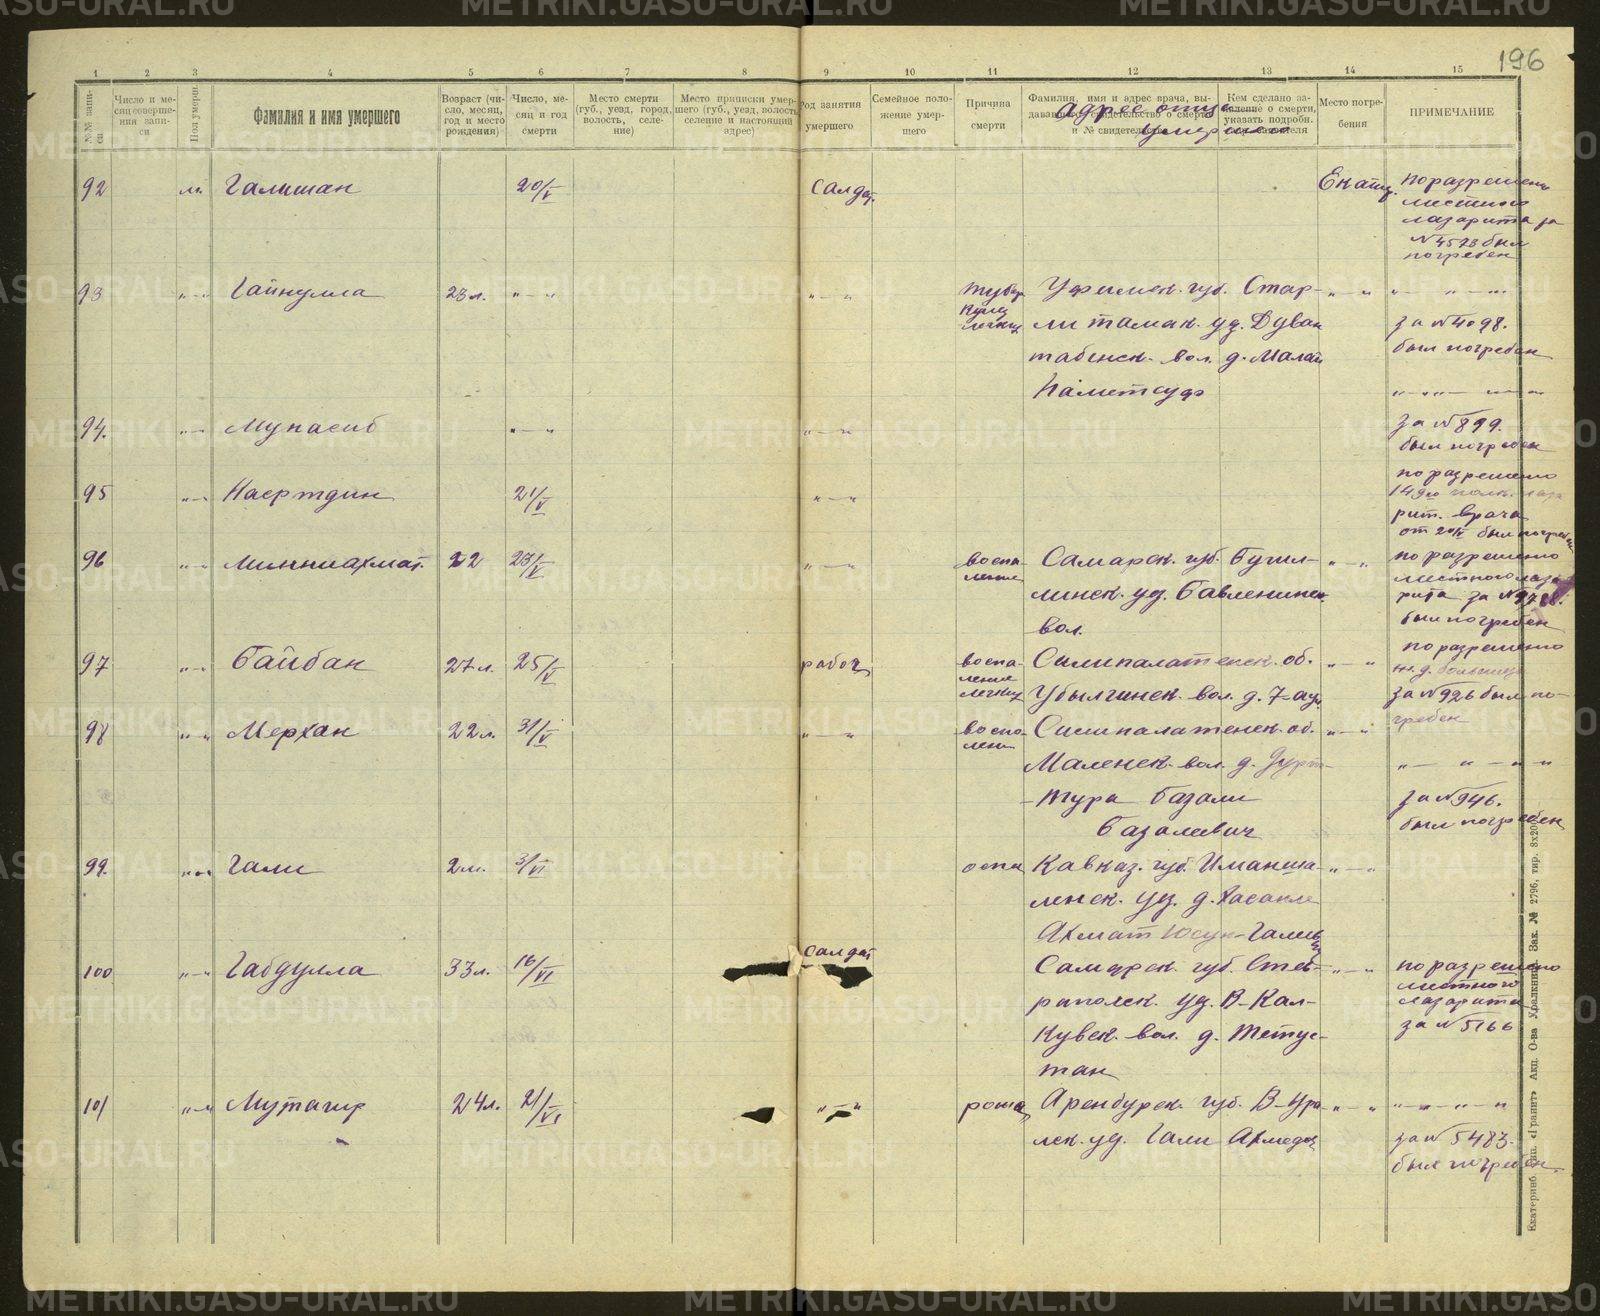 196
1 2 3 4 5 6 7 8 9 10 11 12 13 14 15
№№ записи
Число и месяц совершения записи
Пол умерш.
Фамилия и имя умершего
Возраст (число, месяц, год и место рождения)
Число, месяц и год смерти
Место смерти (губ., уезд, город, волость, селение)
Место приписки умершего (губ., уезд, волость, селение и настоящий адрес)
Род занятия умершего
Семейное положение умершего
Причина смерти
Фамилия, имя и адрес врача, выдавшего свидетельство о смерти и № свидетельства
Адрес отца умершего
Кем сделано заявление о смерти, указать подробн. заявителя
Место погребения
ПРИМЕЧАНИЕ
92 Галишан 20/V Салдат. Екатер.
по разрешен
местного
лазарита за
№ 4528 был
погребен
93 " — " Гайнулла 23 л. " — " " — "
Уфимск. губ. Стар-
литамак. уз. Дуван
табенск. вол. д. Малай
Наметсуф
" — "
за № 4098.
был погребен
94. " — " Мунасиб " — " " — "
за № 899.
был погребен
95 " — " Насртдин 21/V " — "
по разрешению
рит. врача
от 20/V был погребен
96 " — " Минниахмат. 22 23/V " — "
воспа-
ление
Самарск. губ. Бугил-
минск. уд. Бавленинск.
вол.
" — "
по разрешению
местного лаза
рита за №
был погребен
97 " — " Байбан 27 л. 25/V рабоч
воспа-
ление
легких
Симипалатенск. об.
Убылгинск. вол. д. 7-ау.
" — "
по разрешению
ж.д. больницы
за № 926 был по-
гребен
98 " — " Мерхан 22 л. 31/V " — "
воспа-
лени
Симипалатенск. об.
Маленск. вол. д. Дурт-
-тура Базали
Базалевич
" — "
за № 946.
был погребен
99. " — " Гали 2 м. 3/VI
оспа
Кавказ. губ. Иманша-
ленск. уз. д. Хасакле
Ахмат Юсуп-Галиев
" — "
100 " — " Габдулла 33 л. 16/VI Салдат
Самарск. губ. Став-
рапольск. уд. В-Кал-
кувск. вол. д. Тетус-
тан
" — "
по разрешено
местного
лазарита
за № 5166
101 " — " Мутагир 24 л. 21/VI " — "
Аренбурск. губ. В-Ура
лск. уд. Гали Ахмедов
" — "
за № 5483.
был погребен.
Екатеринб. Тип. «Гранит» Акц. О-ва Уралкнига. Зак. № 2796, тир. 3х200
METRIKI.GASO-URAL.RU